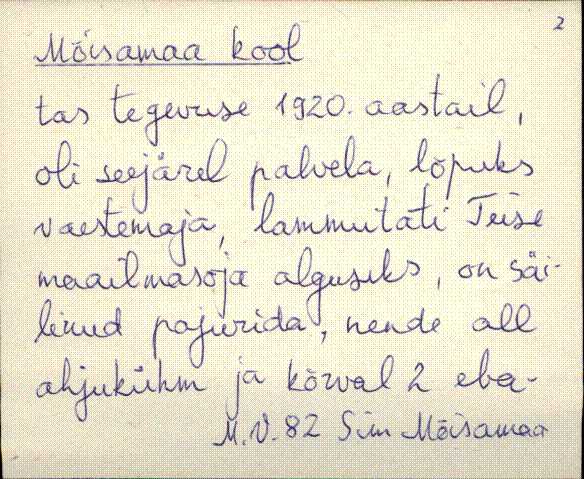 2
Mõisamaa kool
tas tegevuse 1920. aastail,
oli seejärel palvela, lõpuks
vaestemaja, lammutati Teise
maailmasõja alguseks, on säi-
linud pajurida, nende all
ahjukühm ja kõrval 2 eba-
M.V. 82 Sim Mõisamaa